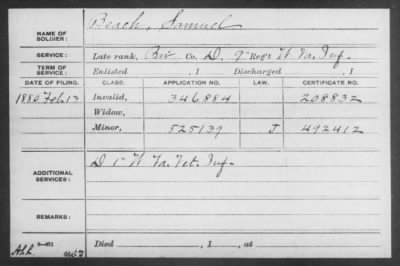 NAME OF SOLDIER: Beach, Samuel
SERVICE: Late rank, Priv Co. D, 9" Reg't W Va. Inf.
TERM OF SERVICE: Enlisted , 1 Discharged , 1
DATE OF FILING. CLASS. APPLICATION NO. LAW. CERTIFICATE NO.
1880 Feb. 13 Invalid, 346884 208832
Widow,
Minor, 525139 J 492412
ADDITIONAL SERVICES: D 1" W Va. Vet. Inf.
REMARKS:
Died , 1 , at